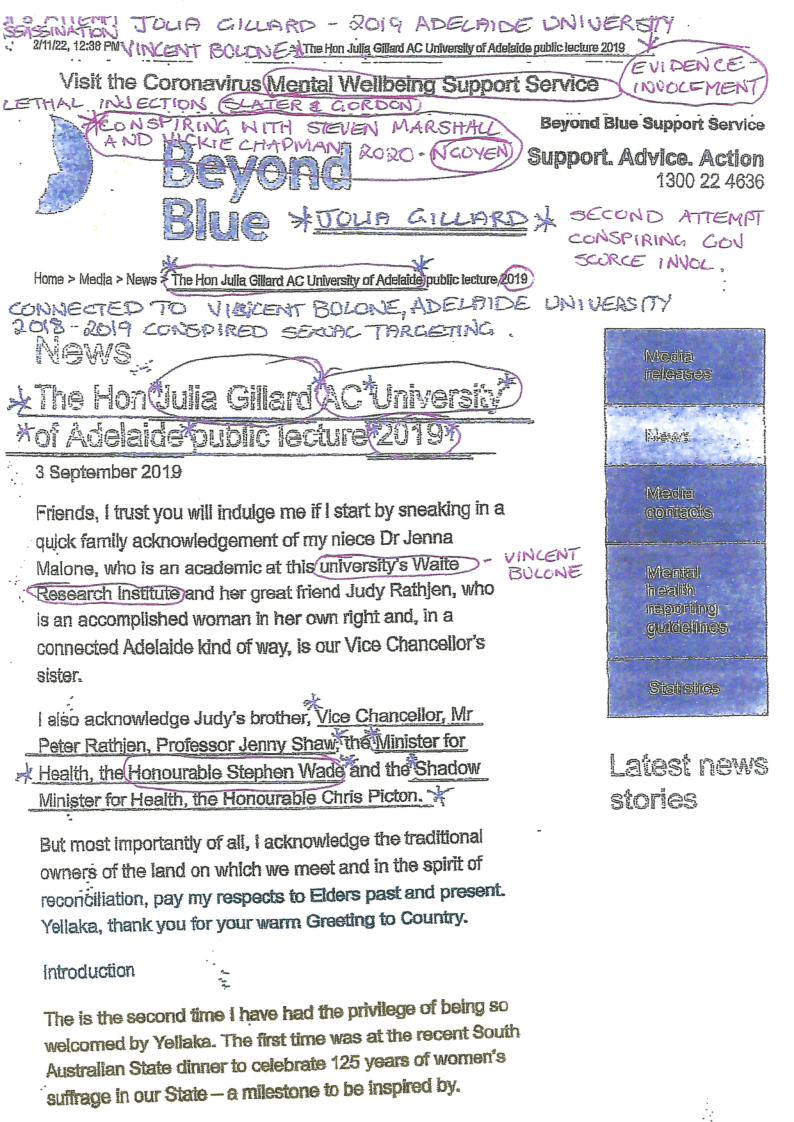 ASSASSINATION JULIA GILLARD - 2019 ADELAIDE UNIVERSITY
2/11/22, 12:38 PM VINCENT BOLONE * The Hon Julia Gillard AC University of Adelaide public lecture 2019
EVIDENCE - INVOLEMENT
Visit the Coronavirus Mental Wellbeing Support Service
LETHAL INJECTION (SLATER & GORDON)
* CONSPIRING WITH STEVEN MARSHALL
AND JACKIE CHAPMAN 2020 - NGOYEN
Beyond Blue Support Service
Support. Advice. Action
1300 22 4636
Beyond
Blue
* JULIA GILLARD *
SECOND ATTEMPT
CONSPIRING GOV
SCORCE INVOL.
Home > Media > News > The Hon Julia Gillard AC University of Adelaide public lecture 2019
CONNECTED TO VINCENT BOLONE, ADELAIDE UNIVERSITY
2018-2019 CONSPIRED SEXUAL TARGETING.
News
* The Hon Julia Gillard AC University
* of Adelaide public lecture 2019
3 September 2019
Friends, I trust you will indulge me if I start by sneaking in a
quick family acknowledgement of my niece Dr Jenna
Malone, who is an academic at this university's Waite - VINCENT
Research Institute and her great friend Judy Rathjen, who BULONE
is an accomplished woman in her own right and, in a
connected Adelaide kind of way, is our Vice Chancellor's
sister.
I also acknowledge Judy's brother, Vice Chancellor, Mr
Peter Rathjen, Professor Jenny Shaw, the Minister for
* Health, the Honourable Stephen Wade and the Shadow
Minister for Health, the Honourable Chris Picton. *
But most importantly of all, I acknowledge the traditional
owners of the land on which we meet and in the spirit of
reconciliation, pay my respects to Elders past and present.
Yellaka, thank you for your warm Greeting to Country.
Introduction
The is the second time I have had the privilege of being so
welcomed by Yellaka. The first time was at the recent South
Australian State dinner to celebrate 125 years of women's
suffrage in our State – a milestone to be inspired by.
Media
releases
News
Media
contacts
Mental
health
reporting
guidelines
Statistics
Latest news
stories